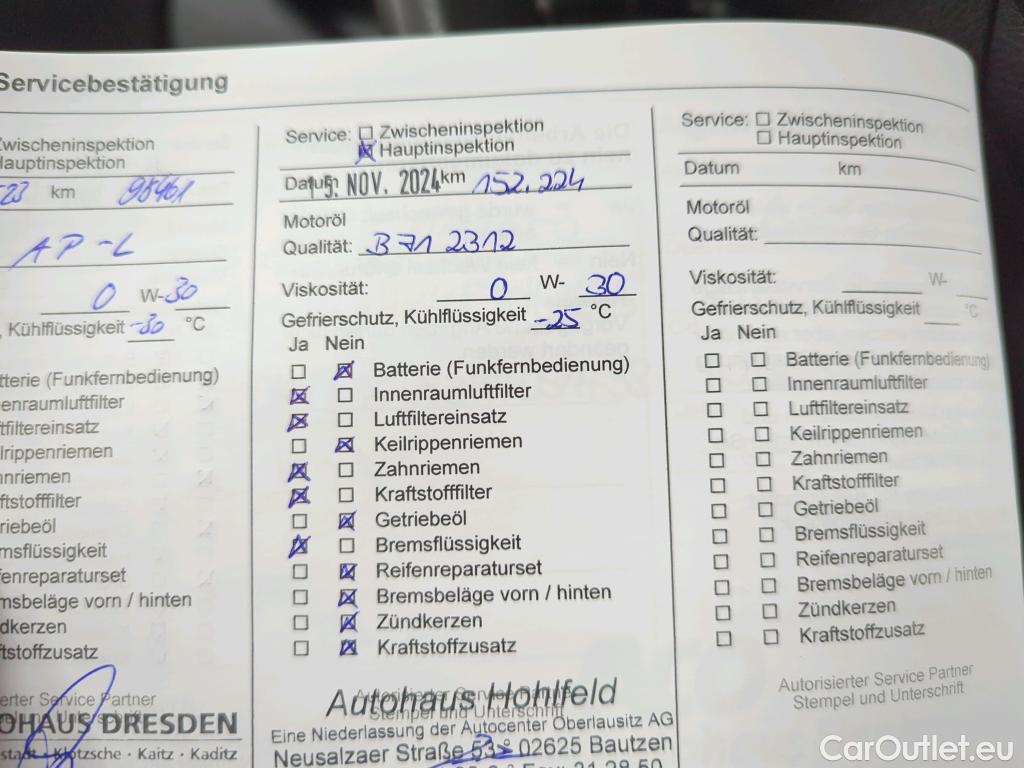 Servicebestätigung
Zwischeninspektion
Hauptinspektion
23 km 98461
AP-L
0 W-30
, Kühlflüssigkeit -30 °C
tterie (Funkfernbedienung)
enraumluftfilter
ftfiltereinsatz
ilrippenriemen
nriemen
ftstofffilter
riebeöl
msflüssigkeit
fenreparaturset
msbeläge vorn / hinten
dkerzen
ftstoffzusatz
erter Service Partner
OHAUS DRESDEN
Klotzsche · Kaitz · Kaditz
Service: Zwischeninspektion
Hauptinspektion
Datum 15. NOV. 2024 km 152.224
Motoröl
Qualität: B 71 2312
Viskosität: 0 W- 30
Gefrierschutz, Kühlflüssigkeit -25 °C
Ja Nein
Batterie (Funkfernbedienung)
Innenraumluftfilter
Luftfiltereinsatz
Keilrippenriemen
Zahnriemen
Kraftstofffilter
Getriebeöl
Bremsflüssigkeit
Reifenreparaturset
Bremsbeläge vorn / hinten
Zündkerzen
Kraftstoffzusatz
Autorisierter Service Partner
Stempel und Unterschrift
Autohaus Hohlfeld
Eine Niederlassung der Autocenter Oberlausitz AG
Neusalzaer Straße 53 02625 Bautzen
Service: Zwischeninspektion
Hauptinspektion
Datum km
Motoröl
Qualität:
Viskosität: W-
Gefrierschutz, Kühlflüssigkeit °C
Ja Nein
Batterie (Funkfernbedienung)
Innenraumluftfilter
Luftfiltereinsatz
Keilrippenriemen
Zahnriemen
Kraftstofffilter
Getriebeöl
Bremsflüssigkeit
Reifenreparaturset
Bremsbeläge vorn / hinten
Zündkerzen
Kraftstoffzusatz
Autorisierter Service Partner
Stempel und Unterschrift
CarOutlet.eu